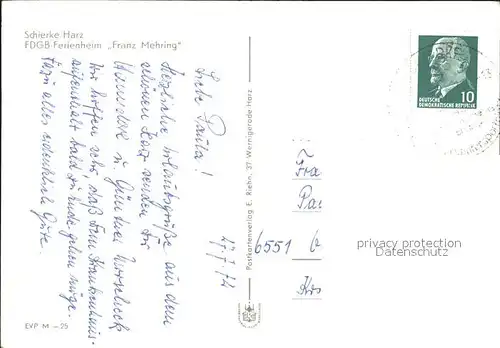 Schierke Harz
FDGB-Ferienheim „Franz Mehring"
Liebe Paula!
Herzliche Urlaubsgrüße aus dem
schönen Harz senden Dir
Hannelore u. Günther
Wir hoffen sehr, daß Dein Krankenhaus-
aufenthalt bald zu Ende gehen möge.
Dazu alles erdenklich Gute.
EVP M -.25
Postkartenverlag E. Riehn, 37 Wernigerode Harz
10
DEUTSCHE
DEMOKRATISCHE REPUBLIK
Fra
Pa
6551
privacy protection
Datenschutz